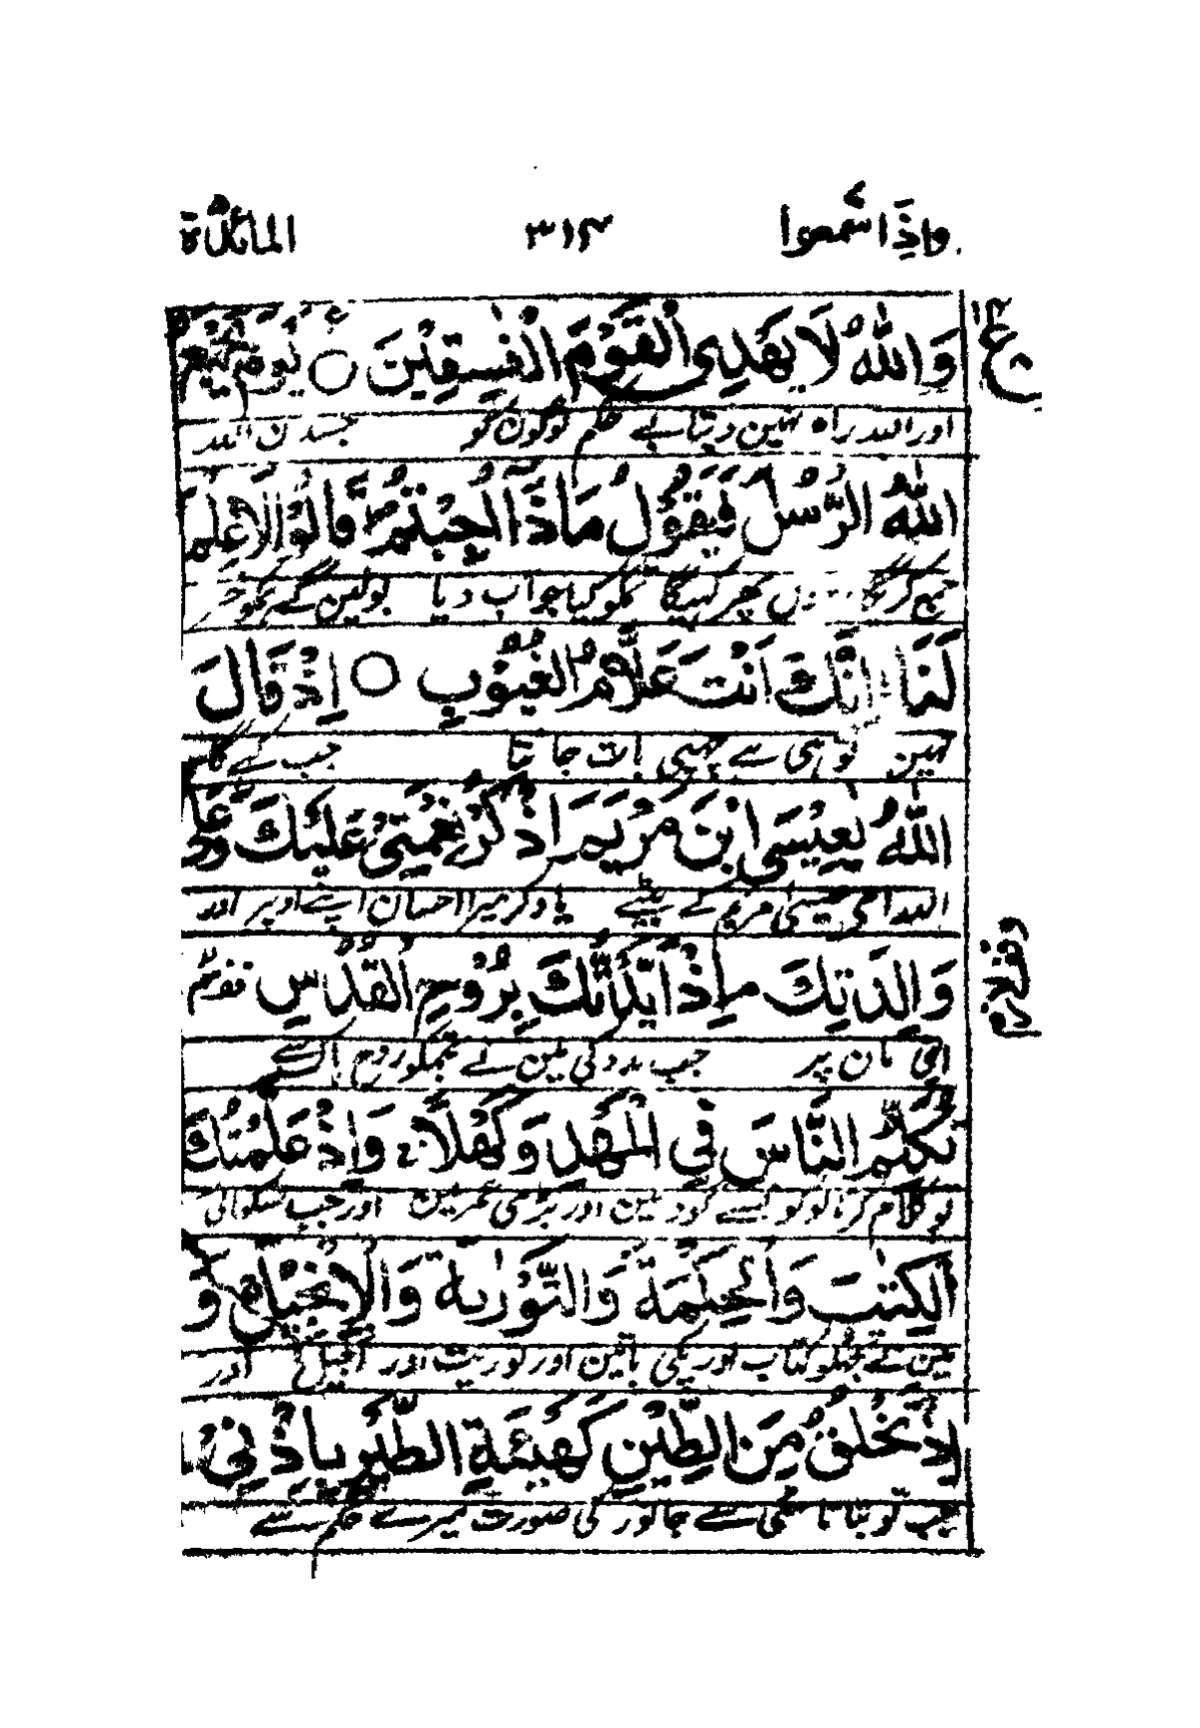 واذا سمعوا ٣١٤ المائدة
وَاللّٰهُ لَا يَهْدِى الْقَوْمَ الْفٰسِقِيْنَ ○ يَوْمَ يَجْمَعُ
اور اللہ راہ نہین دیتا بے حکم لوگون کو جسدن اللہ
اللّٰهُ الرُّسُلَ فَيَقُوْلُ مَاذَآ اُجِبْتُمْ ط قَالُوْا لَا عِلْمَ
جمع کرے گا پھر کہیگا تمکو کیا جواب دیا بولین گے ہمکو خبر
لَنَا اِنَّكَ اَنْتَ عَلَّامُ الْغُيُوْبِ ○ اِذْ قَالَ
نہین توہی ہے چھپی بات جانتا جب کہے گا
اللّٰهُ يٰعِيْسَى ابْنَ مَرْيَمَ اذْكُرْ نِعْمَتِىْ عَلَيْكَ وَعَلٰى
اللہ اے عیسیٰ مریم کے بیٹے یاد کر میرا احسان اپنے اوپر اور
وَالِدَتِكَ م اِذْ اَيَّدْتُّكَ بِرُوْحِ الْقُدُسِ
اپنی مان پر جب مدد کی مین نے تجھکو روح پاک سے
تُكَلِّمُ النَّاسَ فِى الْمَهْدِ وَكَهْلًا ج وَاِذْ عَلَّمْتُكَ
تو کلام کرتا لوگو نسے گود مین اور بڑی عمر مین اور جب سکھائی
الْكِتٰبَ وَالْحِكْمَةَ وَالتَّوْرٰىةَ وَالْاِنْجِيْلَ ج وَ
مین نے تجھکو کتاب اور پکی باتین اور توریت اور انجیل اور
اِذْ تَخْلُقُ مِنَ الطِّيْنِ كَهَيْئَةِ الطَّيْرِ بِاِذْنِىْ
جب تو بناتا مٹی سے جانور کی صورت میرے حکم سے